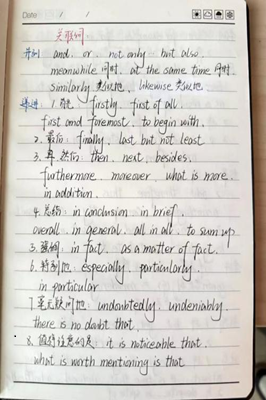 Date / /
关联词
并列 and. or. not only but also.
meanwhile 同时. at the same time 同时.
similarly 类似地, likewise 类似地
递进 1. 首先. firstly, first of all.
first and foremost. to begin with.
2. 最后: finally, last but not least
3. 再, 然后: then, next, besides.
furthermore, moreover, what is more.
in addition.
4. 总的: in conclusion in brief.
overall. in general. all in all. to sum up
5. 强调: in fact. as a matter of fact.
6. 特别地 especially, particularly.
in particular
7. 毫无疑问地 undoubtedly. undeniably.
there is no doubt that.
8. 值得注意的是: it is noticeable that.
what is worth mentioning is that